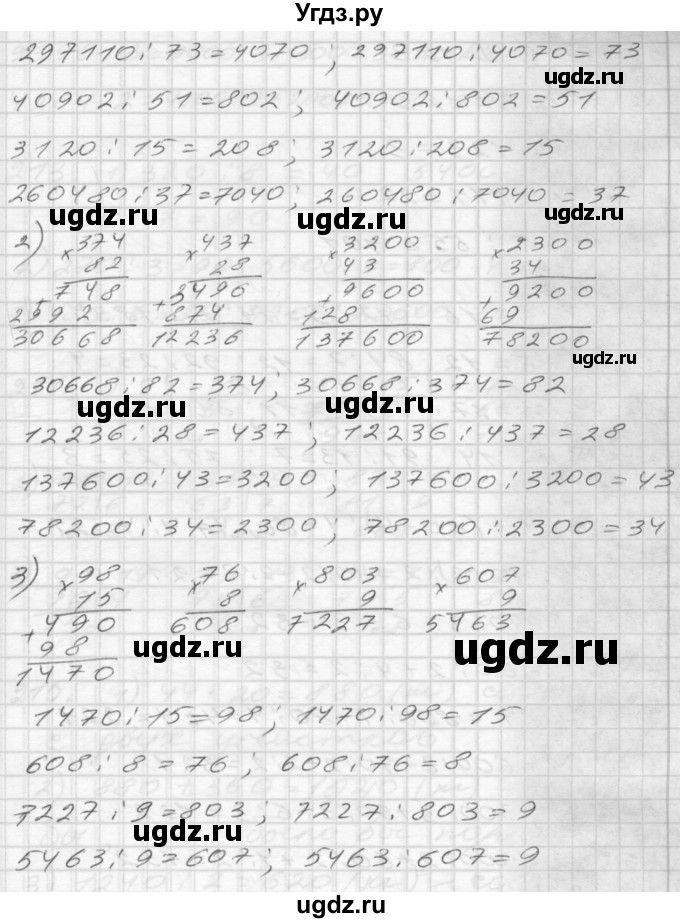 Угдз.ру
297110 : 73 = 4070 ; 297110 : 4070 = 73
ugdz.ru
40902 : 51 = 802 ; 40902 : 802 = 51
3120 : 15 = 208 ; 3120 : 208 = 15
ugdz.ru
260480 : 37 = 7040 ; 260480 : 7040 = 37
ugdz.ru ugdz.ru
2) × 374 × 437 × 3200 × 2300
82 28 43 34
+ 748 + 3496 + 9600 + 9200
2992 874 128 69
30668 12236 137600 78200
ugdz.ru
30668 : 82 = 374 ; 30668 : 374 = 82
ugdz.ru ugdz.ru
12236 : 28 = 437 ; 12236 : 437 = 28
137600 : 43 = 3200 ; 137600 : 3200 = 43
78200 : 34 = 2300 ; 78200 : 2300 = 34
3) × 98 × 76 × 803 × 607
15 8 9 9
+ 490 608 7227 5463
98
1470
ugdz.ru ugdz.ru
1470 : 15 = 98 ; 1470 : 98 = 15
608 : 8 = 76 ; 608 : 76 = 8
7227 : 9 = 803 ; 7227 : 803 = 9
ugdz.ru
5463 : 9 = 607 ; 5463 : 607 = 9
ugdz.ru